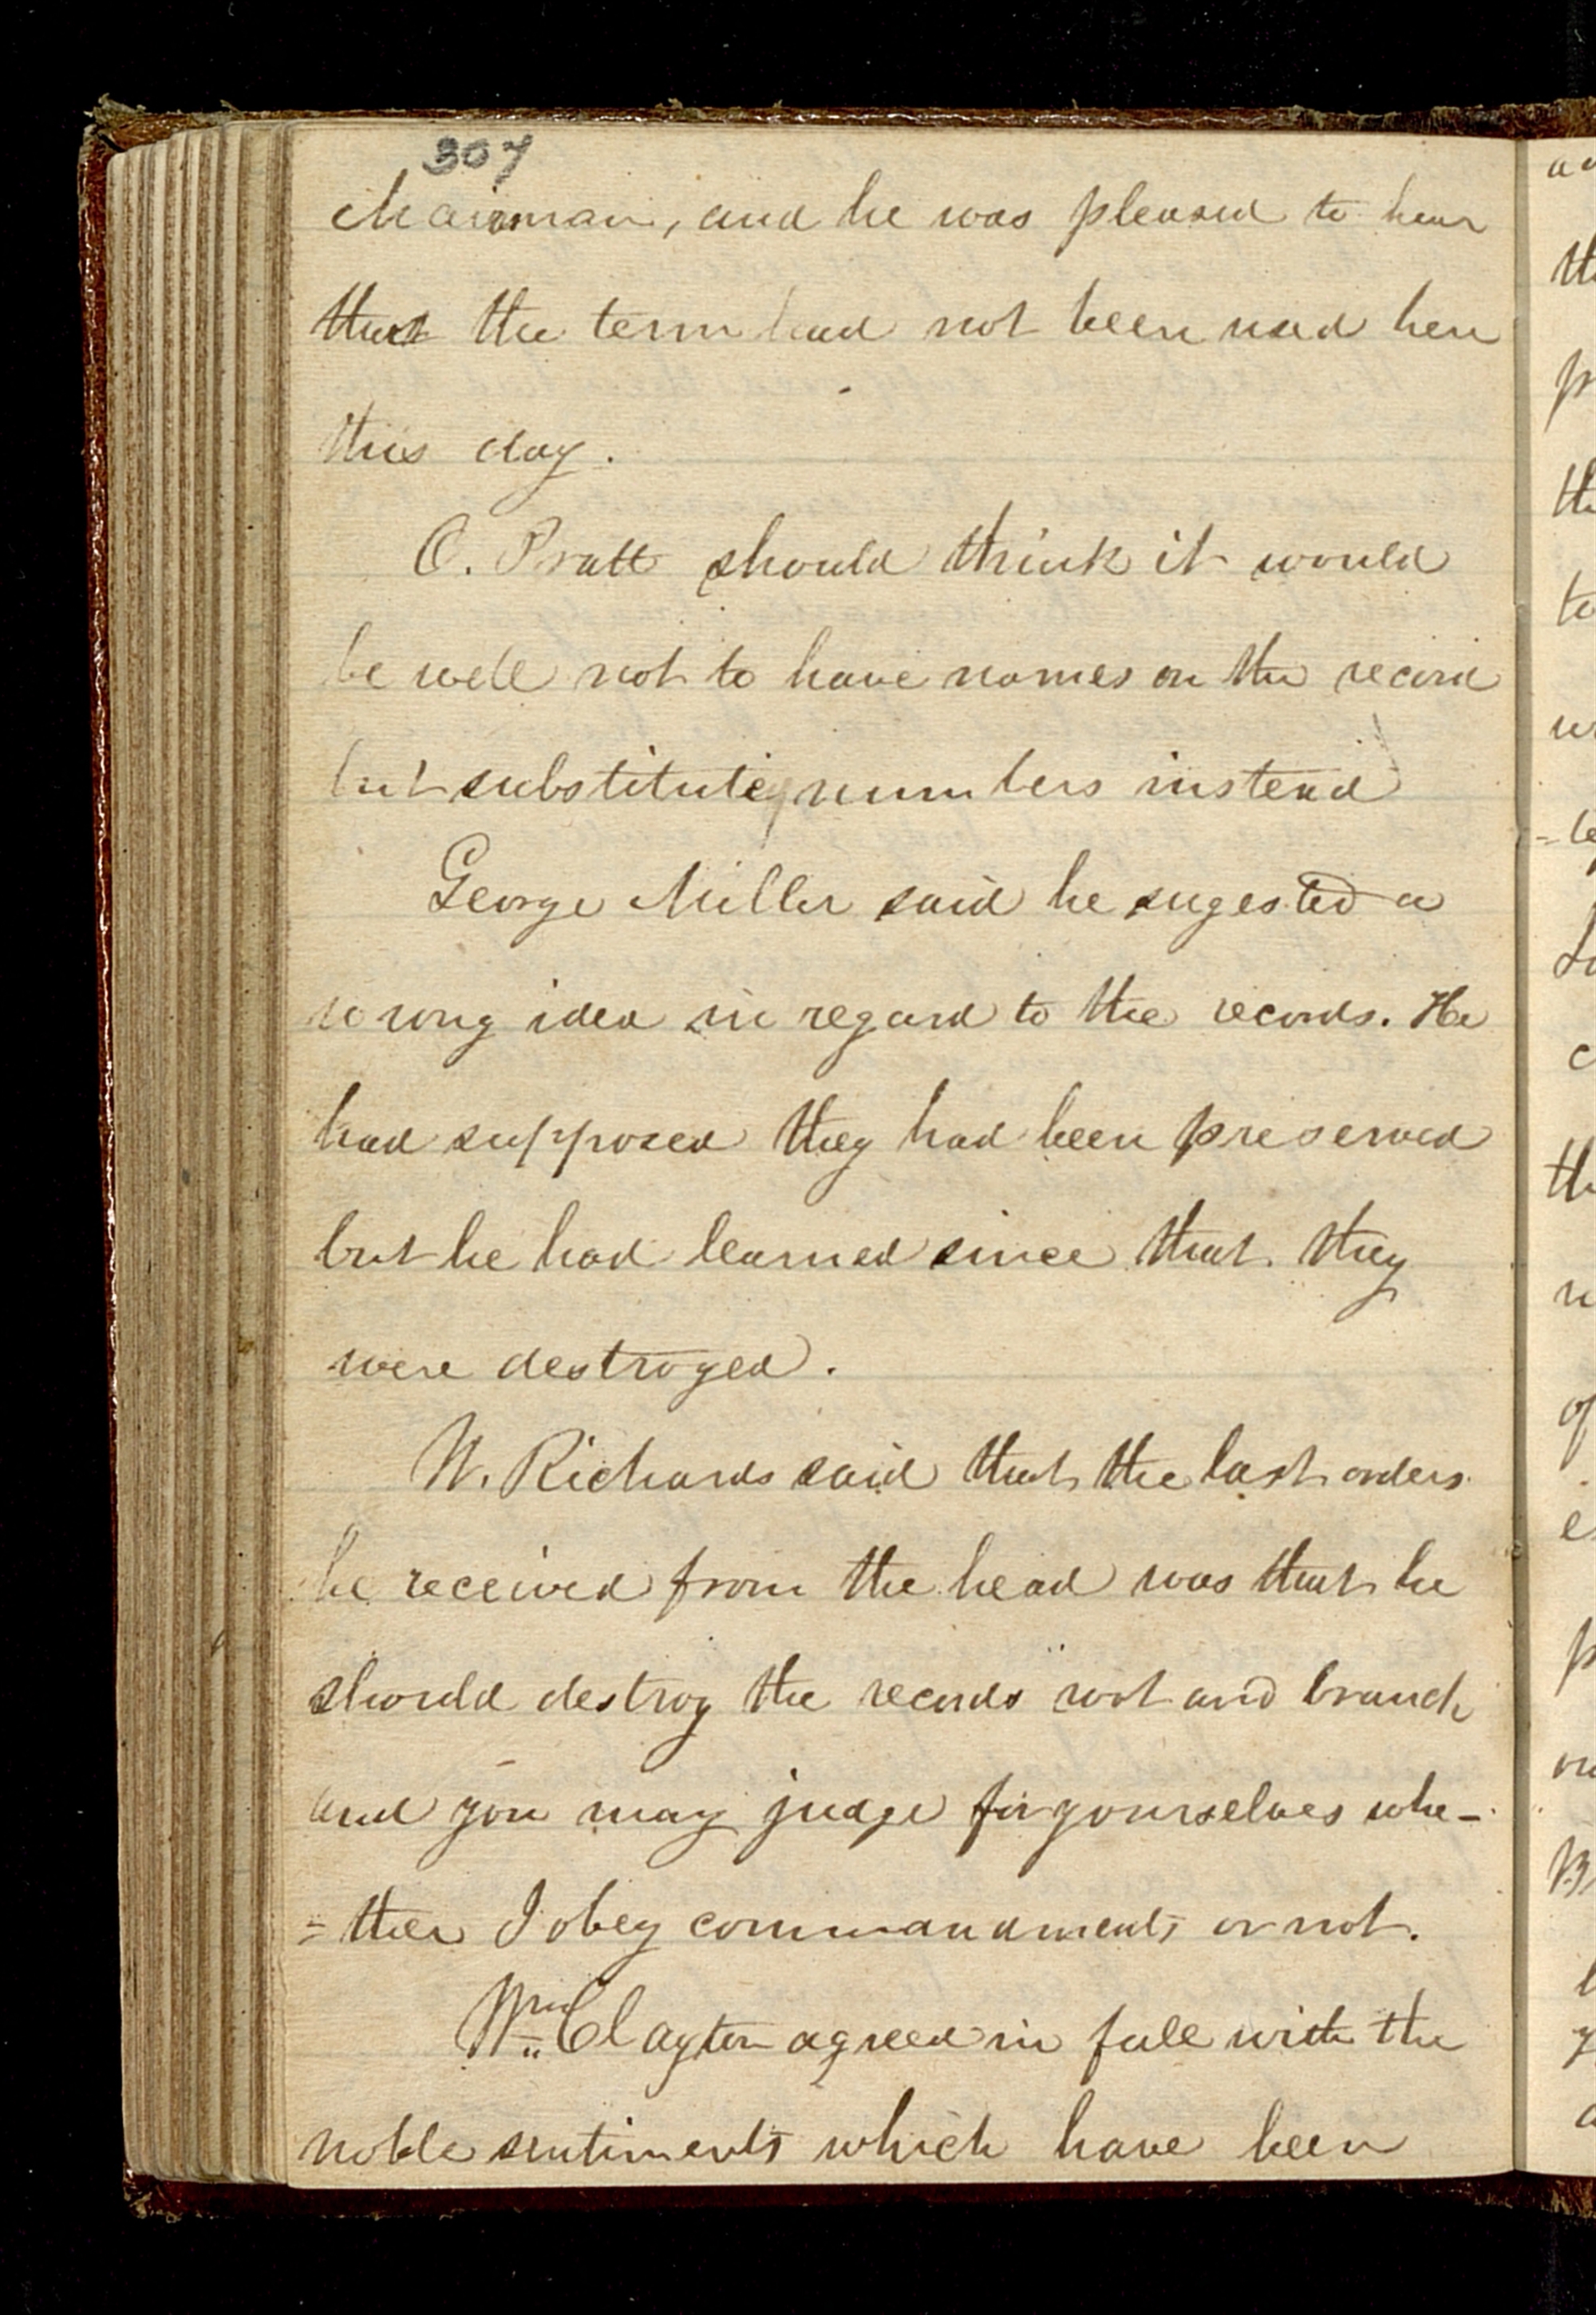 307
chairman, and he was pleased to hear
that the term had not been used here
this day.
O. Pratt should think it would
be well not to have names on the record
but substitute numbers instead
George Miller said he sugested a
wrong idea in regard to the records. He
had supposed they had been preserved
but he had learned since that they
were destroyed.
W. Richards said that the last orders
he received from the head was that he
should destroy the records root and branch
and you may judge for yourselves whe-
=ther I obey commandments or not.
Wm Clayton agreed in full with the
noble sentiments which have been